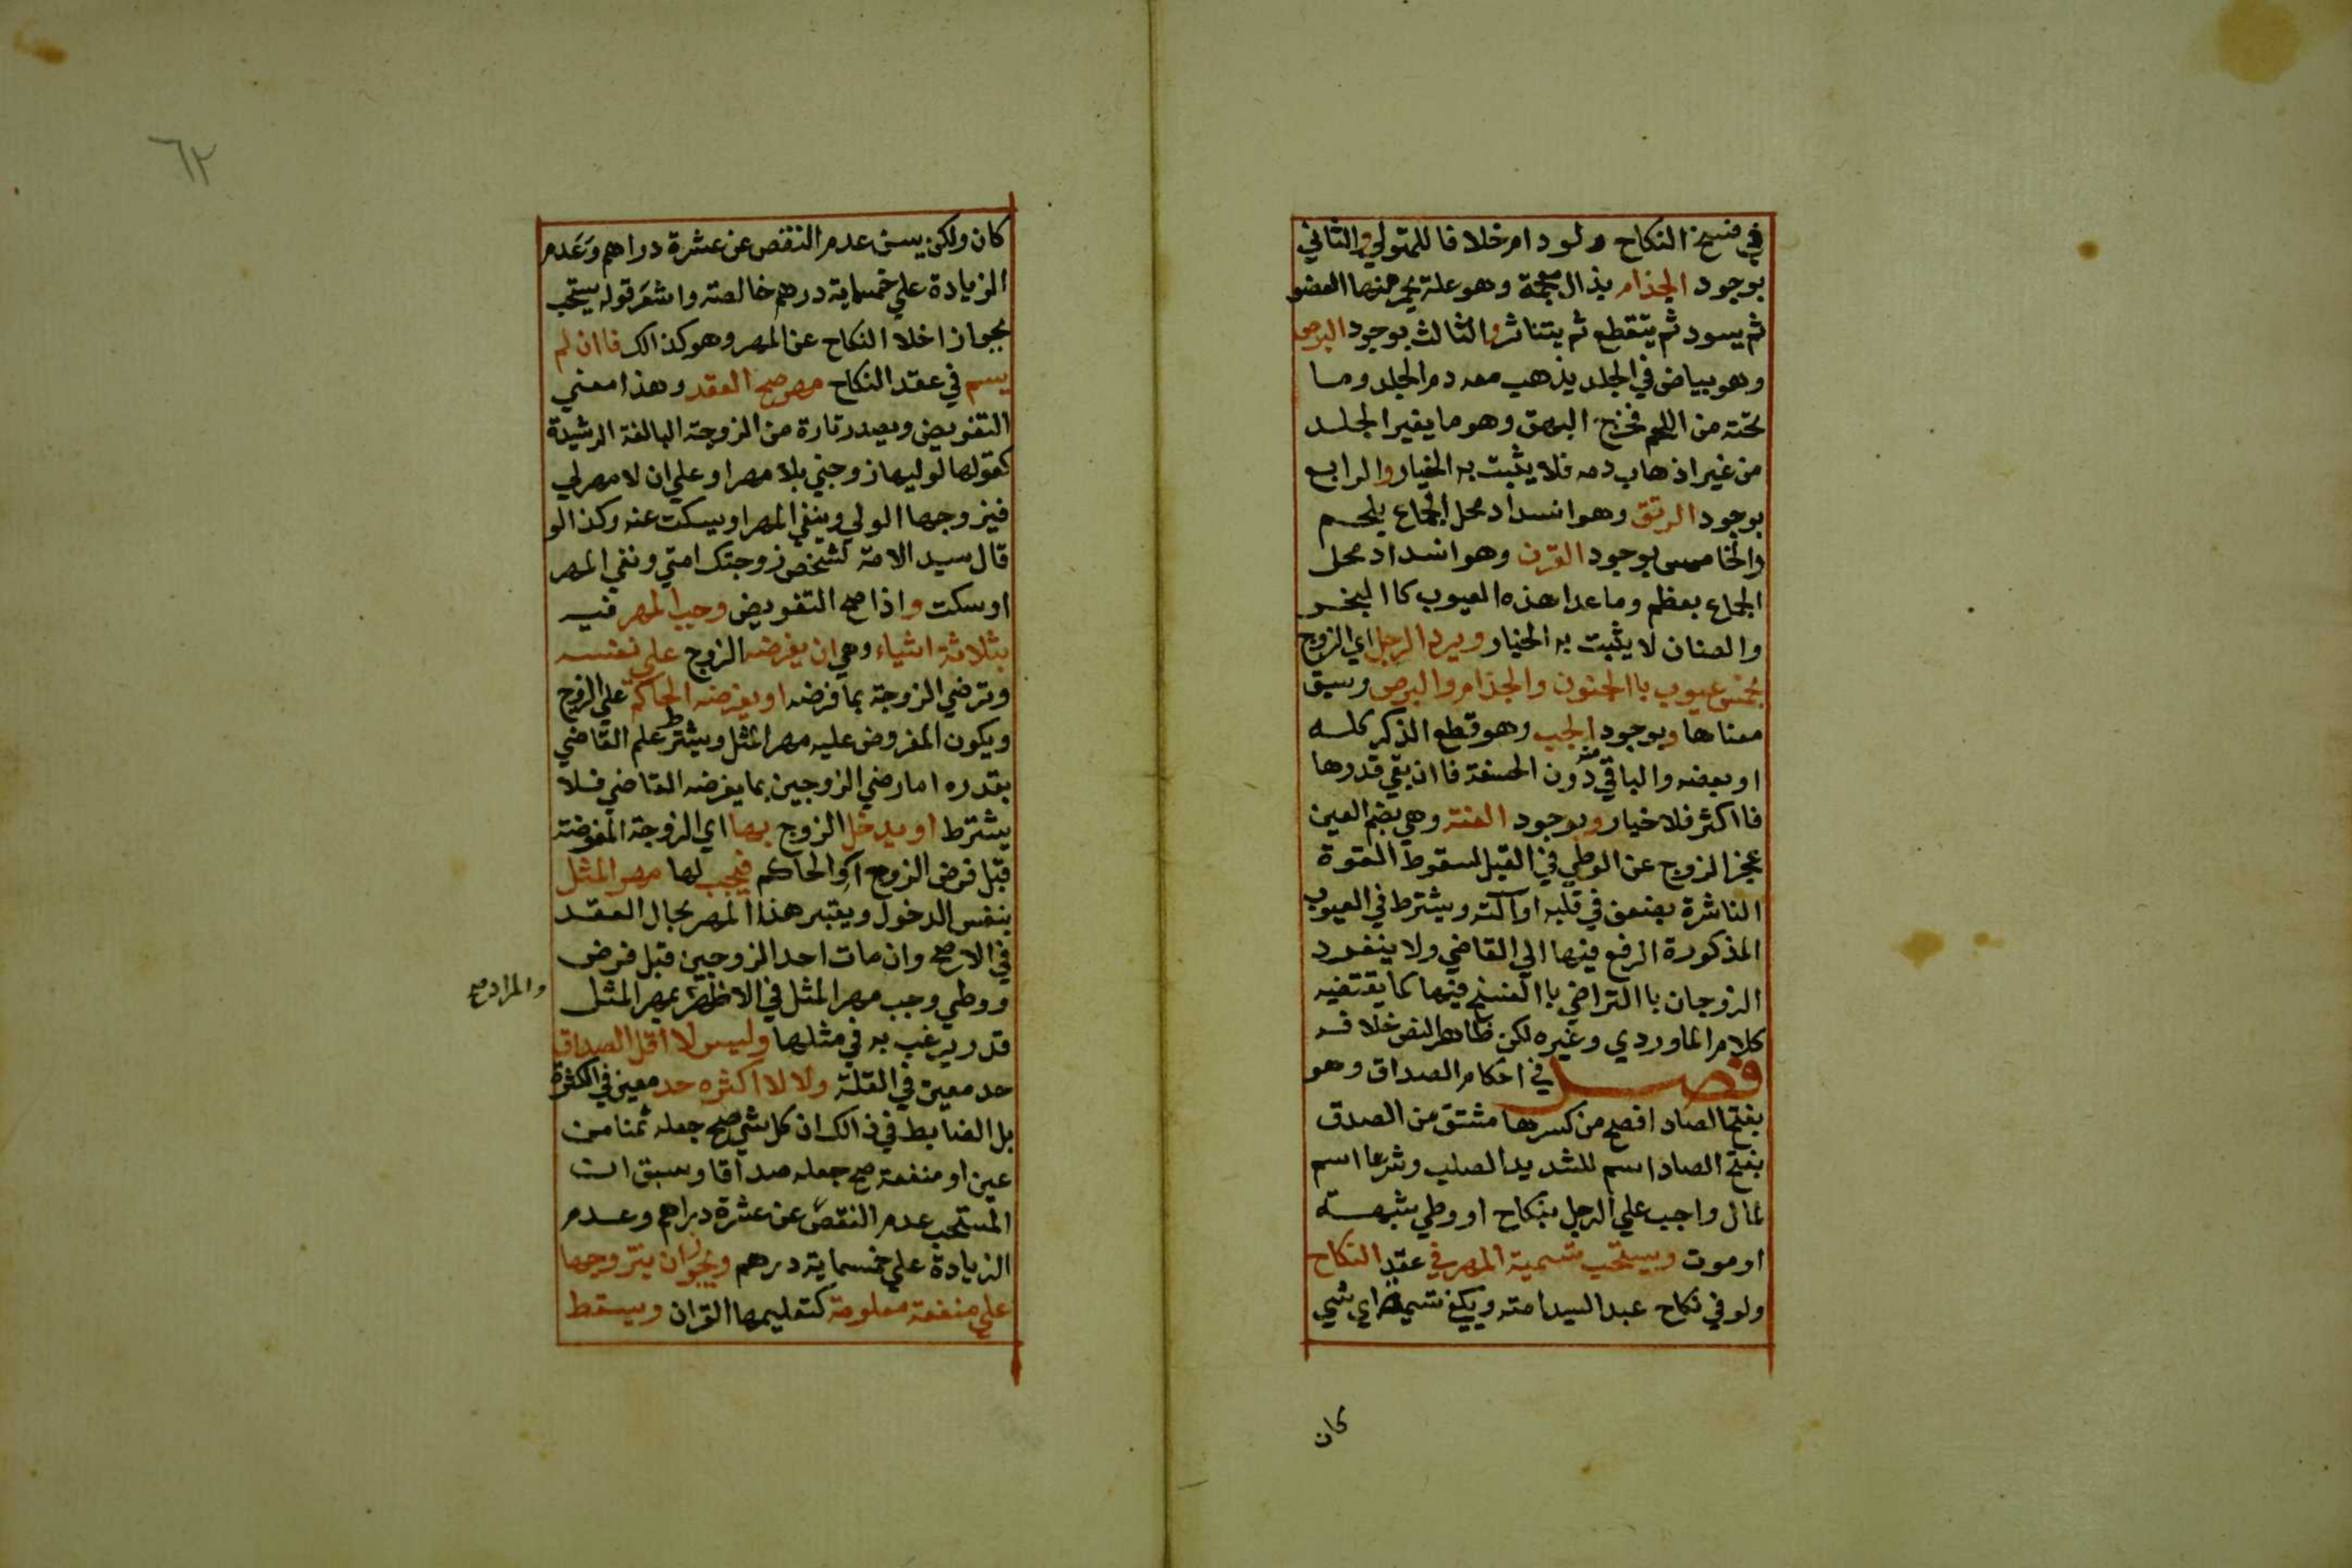 في فسخ النكاح ولو دام خلافا للمتولي والثاني
بوجود الجذام بذال معجمة وهو علة يحمر منها العضو
ثم يسود ثم يتقطع ثم يتناثر والثالث بوجود البرص
وهو بياض في الجلد يذهب معه دم الجلد وما
تحته من اللحم فخرج البهق وهو ما يغير الجلد
من غير اذهاب دمه فلا يثبت به الخيار والرابع
بوجود الرتق وهو انسداد محل الجماع بلحم
والخامس بوجود القرن وهو انسداد محل
الجماع بعظم وما عدا هذه العيوب كاالبخر
والصنان لا يثبت به الخيار ويرد الرجل اي الزوج
بخمس عيوب باالجنون والجذام والبرص وسبق
معناها وبوجود الجب وهو قطع الذكر كله
او بعضه والباقي منه دون الحشفة فاان بقي قدرها
فااكثر فلا خيار وبوجود العنة وهي بضم العين
عجز الزوج عن الوطي في القبل لسقوط القوة
الناشرة بضعف في قلبه او آلته ويشترط في العيوب
المذكورة الرفع فيها الي القاضي ولا ينفرد
الزوجان باالتراضي باالفسخ فيها كما يقتضيه
كلام الماوردي وغيره لكن ظاهر النص خلافه
فصل في احكام الصداق وهو
بفتح الصاد افصح من كسرها مشتق من الصدق
بفتح الصاد اسم للشديد الصلب وشرعا اسم
لمال واجب علي الرجل بنكاح او وطي شبهة
او موت ويستحب تسمية المهر في عقد النكاح
ولو في نكاح عبد السيد امته ويكفي تسمية اي شي
كان
٦٢
كان ولكن يسن عدم النقص عن عشرة دراهم وعدم
الزيادة علي خمسماية درهم خالصة واشعر قوله يستحب
بجواز اخلا النكاح عن المهر وهو كذالك فاان لم
يسم في عقد النكاح مهر صح العقد وهذا معني
التفويض ويصدر تارة من الزوجة البالغة الرشيدة
كقولها لوليها زوجني بلا مهر او علي ان لا مهر لي
فيزوجها الولي وينفي المهر او يسكت عنه وكذا لو
قال سيد الامة لشخص زوجتك امتي ونفي المهر
او سكت واذا صح التفويض وجب المهر فيه
بثلاثة اشياء وهي ان يفرضه الزوج علي نفسه
وترضي الزوجة بما فرضه او يفرضه الحاكم علي الزوج
ويكون المفروض عليه مهر المثل ويشترط علم القاضي
بقدره اما رضي الزوجين بما يفرضه القاضي فلا
يشترط او يدخل الزوج بها اي الزوجة المفوضة
قبل فرض الزوج او الحاكم فيجب لها مهر المثل
بنفس الدخول ويعتبر هذا المهر بحال العقد
في الاصح وان مات احد الزوجين قبل فرض
ووطي وجب مهر المثل في الاظهر بمهر المثل
والمراد صح
قدر يرغب به في مثلها وليس لا اقل الصداق
حد معين في القلة ولا لا اكثره حد معين في الكثرة
بل الضابط في ذالك ان كل شي صح جعله ثمنا من
عين او منفعة صح جعله صداقا وسبق ان
المستحب عدم النقص عن عشرة دراهم وعدم
الزيادة علي خمسماية درهم ويجوز ان يتزوجها
علي منفعة معلومة كتعليمها القران ويسقط